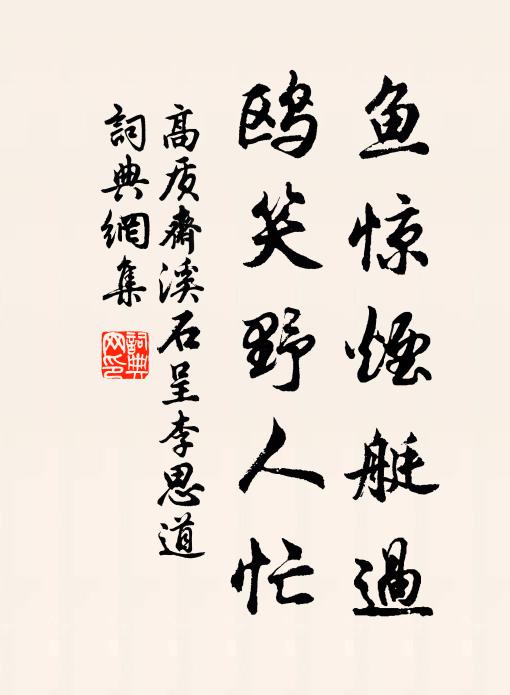 鱼惊烟艇過
鸥笑野人忙
高质斋溪石呈李思道
詞典網集
詞典網印